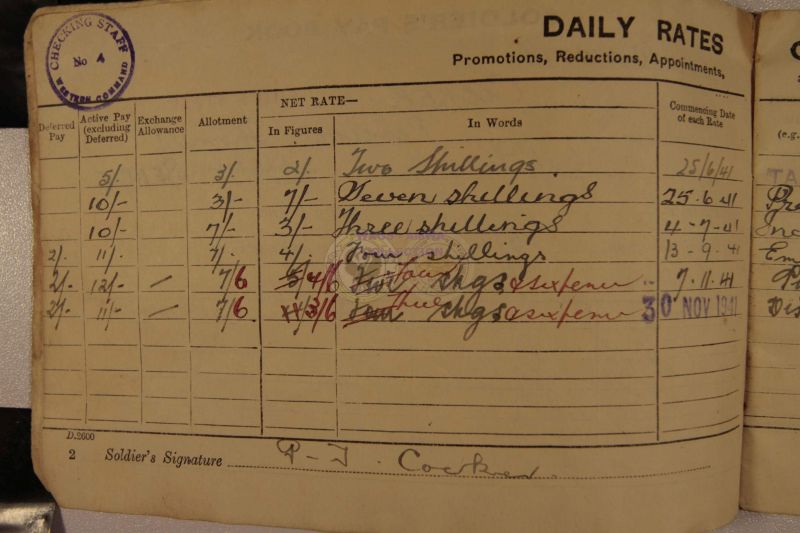 CHECKING STAFF
No 4
WESTERN COMMAND
DAILY RATES
Promotions, Reductions, Appointments,
Deferred Pay | Active Pay (excluding Deferred) | Exchange Allowance | Allotment | NET RATE— In Figures | In Words | Commencing Date of each Rate
(e.g.
5/- 3/- 2/- Two Shillings. 25/6/41
10/- 3/- 7/- Seven shillings 25.6.41
10/- 7/- 3/- Three shillings 4-7-41
2/- 11/- 7/- 4/- Four shillings 13-9-41
2/- 12/- 7/6 5/ 4/6 Five four shgs & sixpence 7.11.41
2/- 11/- 7/6 3/6 three shgs & sixpence 30 NOV 1941
D.2600
2 Soldier's Signature